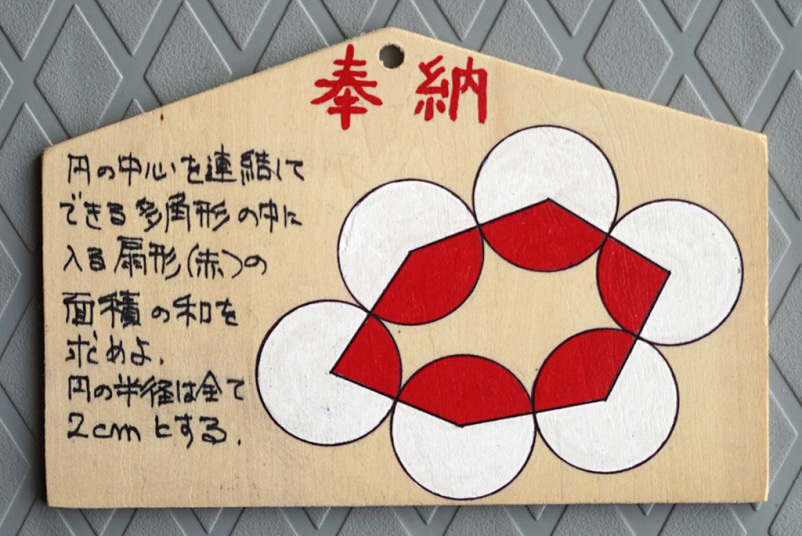 奉納
円の中心を連結して
できる多角形の中に
入る扇形(赤)の
面積の和を
求めよ.
円の半径は全て
2cmとする.